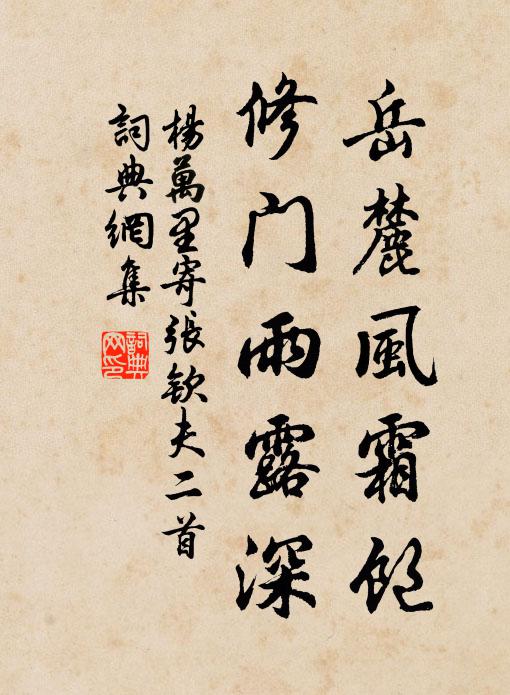 岳麓風霜飽
修門雨露深
楊萬里寄張欽夫二首
詞典網集
詞典
网印